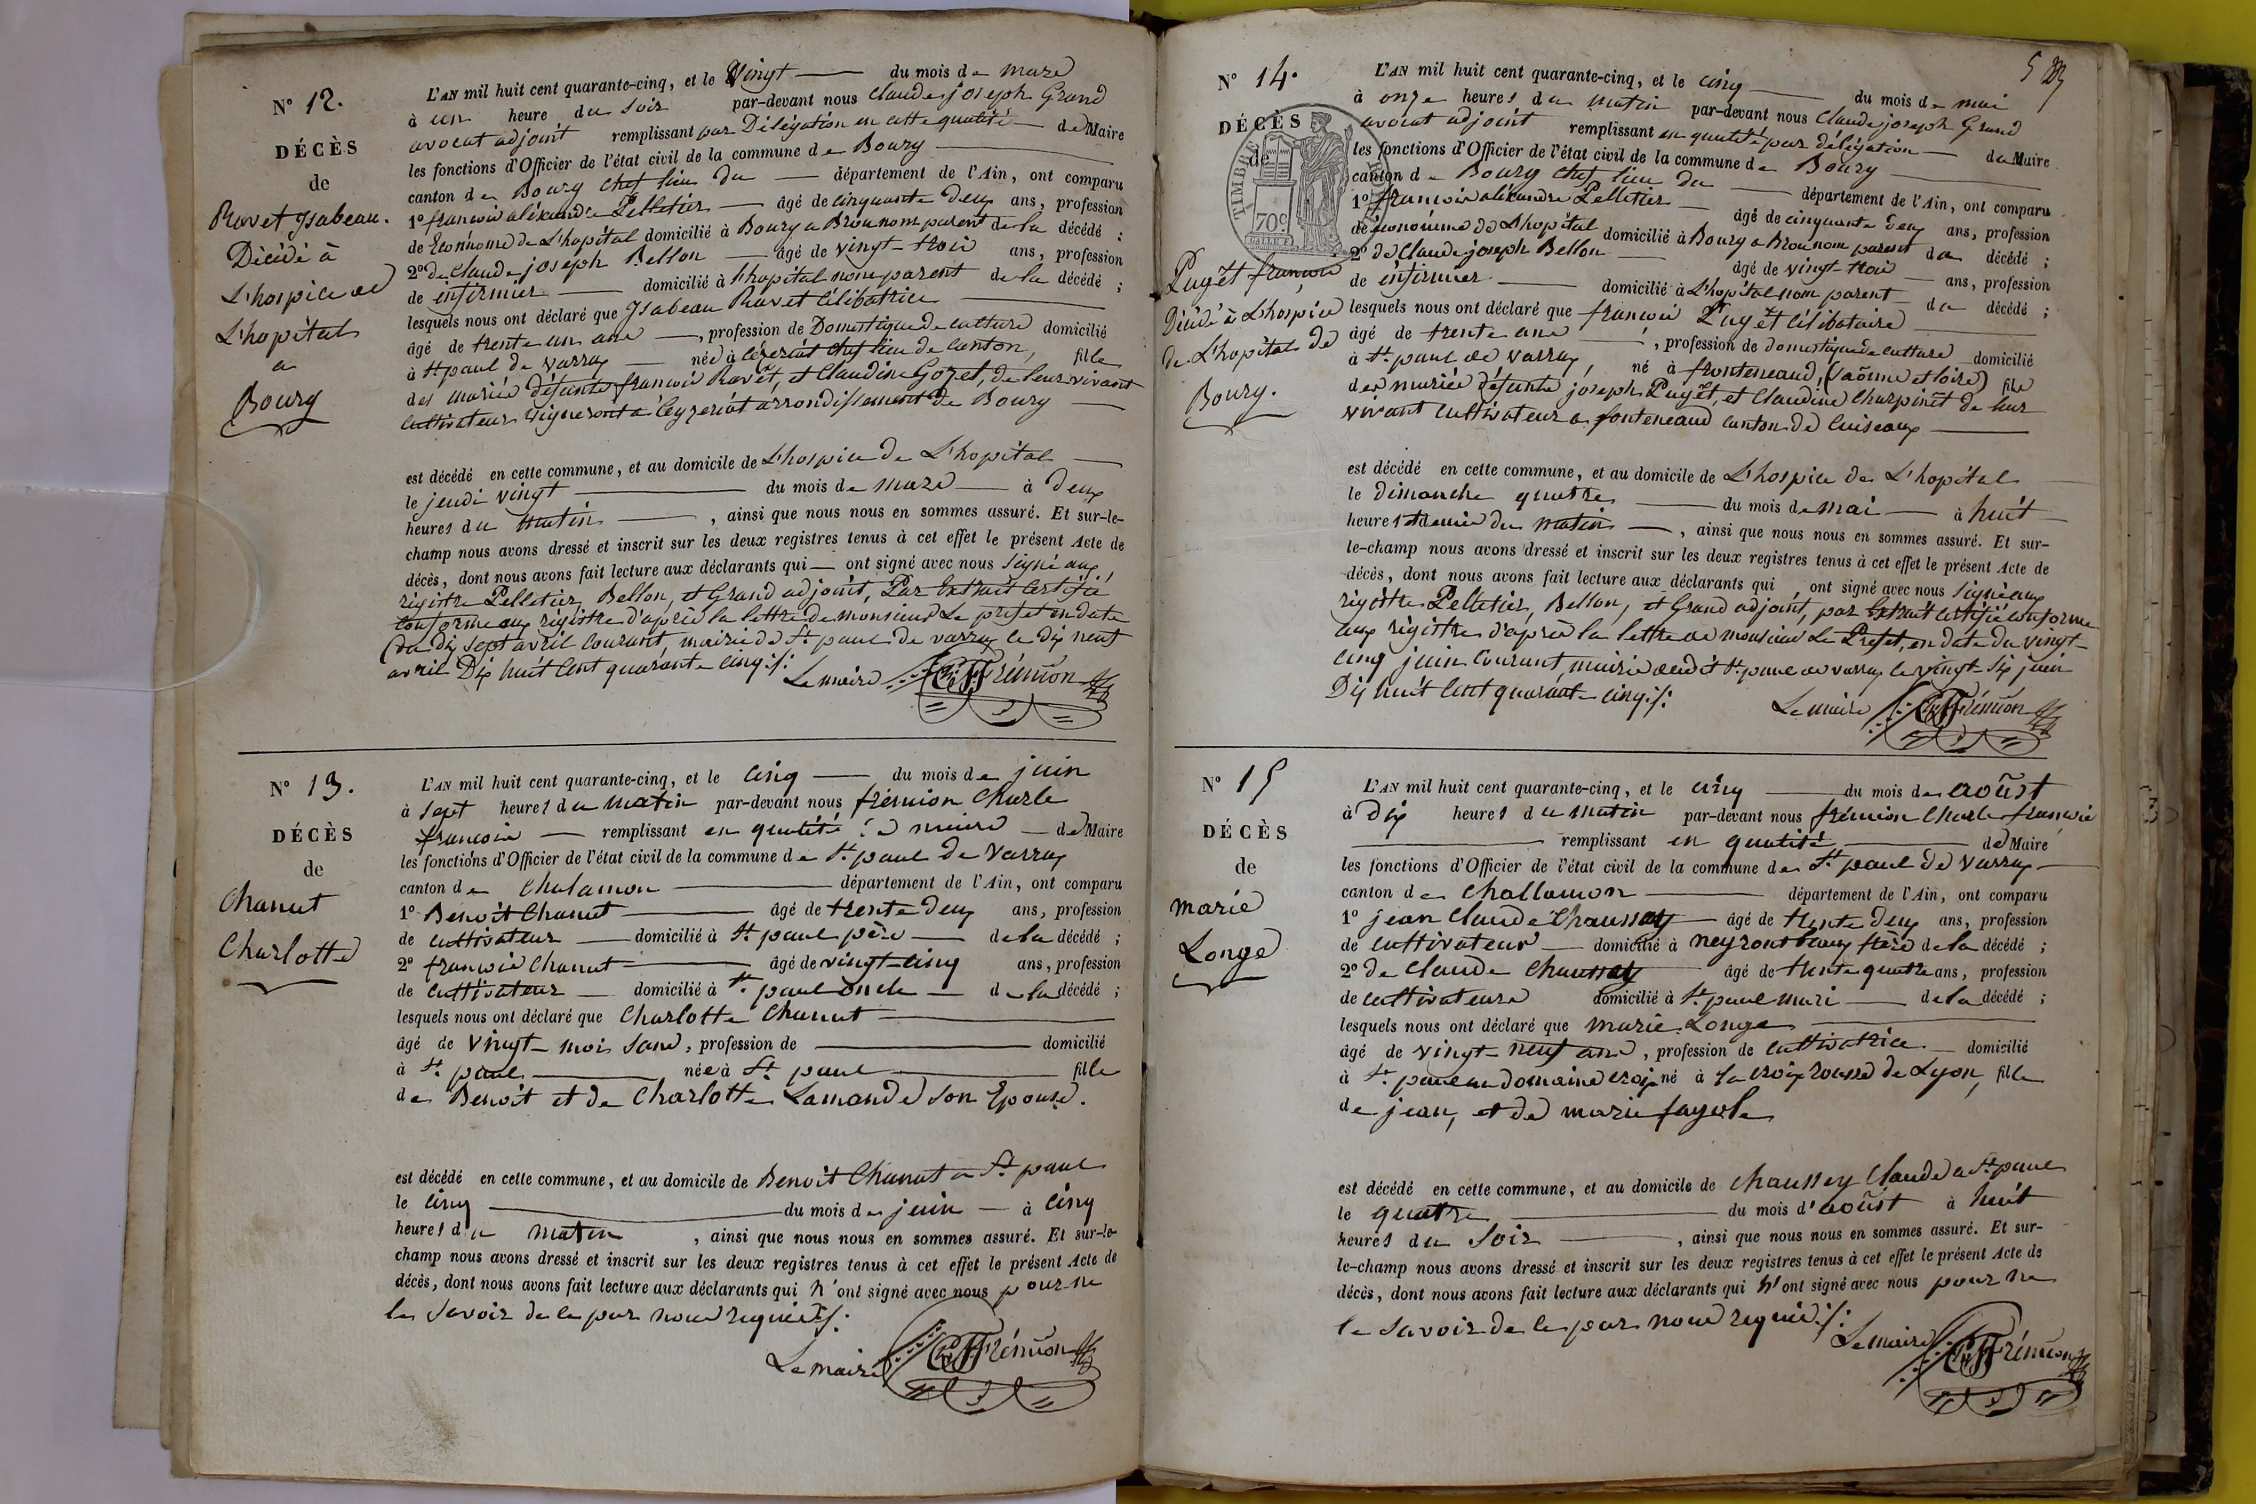 N° 12.
DÉCÈS
de
Ravet Ysabeau.
Décédé à
L'hospice de
L'hopital
a
Bourg
L'AN mil huit cent quarante-cinq, et le Vingt du mois de mars
à une heure du soir par-devant nous Claude joseph Grand
avocat adjoint remplissant par Délégation en cette qualité de Maire
les fonctions d'Officier de l'état civil de la commune de Bourg
canton de Bourg chef lieu du département de l'Ain, ont comparu
1° françois aléxandre Pelletier âgé de cinquante deux ans, profession
de Econnome de L'hopital domicilié à Bourg a Brou nom parent de la décédé ;
2° de Claude joseph Bellon âgé de vingt-trois ans, profession
de infirmier domicilié à l'hopital nom parent de la décédé ;
lesquels nous ont déclaré que Ysabeau Ravet Célibatrice
âgé de trente un ans, profession de Domestique de culture domicilié
à St paul de varrax née à céyzériat chef lieu de canton, fille
des mariés défunts françois Ravet, et Claudine Gozel, de leur vivant
cultivateur vigneront a Ceyzeriat arrondissement de Bourg
est décédé en cette commune, et au domicile de L'hospice de L'hopital
le jeudi vingt du mois de mars à deux
heures du matin, ainsi que nous nous en sommes assuré. Et sur-le-
champ nous avons dressé et inscrit sur les deux registres tenus à cet effet le présent Acte de
décès, dont nous avons fait lecture aux déclarants qui ont signé avec nous Signé aux
régistre Pelletier, Bellon, et Grand adjoint, Par Extrait Certifié
Conforme aux régistre d'après la lettre de monsieur Le préfet en date
du dix sept avril courant, mairie de St paul de varrax le dix neuf
avril Dix huit Cent quarante cinq ./.
Le maire Frémion
N° 13.
DÉCÈS
de
Chanut
Charlotte
L'AN mil huit cent quarante-cinq, et le cinq du mois de juin
à sept heures du matin par-devant nous frémion Charle
françois remplissant en qualité de maire de Maire
les fonctions d'Officier de l'état civil de la commune de St paul de varrax
canton de Chalamon département de l'Ain, ont comparu
1° Benoit Chanut âgé de trente deux ans, profession
de cultivateur domicilié à St paul père de la décédé ;
2° françois Chanut âgé de vingt-cinq ans, profession
de cultivateur domicilié à St paul oncle de la décédé ;
lesquels nous ont déclaré que Charlotte Chanut
âgé de vingt mois sans, profession de domicilié
à St paul née à St paul fille
de Benoit et de Charlotte Lamande son Epouse.
est décédé en cette commune, et au domicile de Benoit Chanut a St paul
le cinq du mois de juin à cinq
heures du matin, ainsi que nous nous en sommes assuré. Et sur-le-
champ nous avons dressé et inscrit sur les deux registres tenus à cet effet le présent Acte de
décès, dont nous avons fait lecture aux déclarants qui n'ont signé avec nous pour ne
le savoir de ce par nous requis ./.
Le maire Frémion
5
N° 14.
DÉCÈS
de
TIMBRE ROYAL
70c
Pugët françois
Décédé à L'hospice
de L'hopital de
Bourg.
L'AN mil huit cent quarante-cinq, et le cinq du mois de mai
à onze heures du matin par-devant nous Claude joseph Grand
avocat adjoint remplissant en qualité par délégation du Maire
les fonctions d'Officier de l'état civil de la commune de Bourg
canton de Bourg chef lieu du département de l'Ain, ont comparu
1° françois aléxandre Pelletier âgé de cinquante deux ans, profession
de économme de L'hopital domicilié à Bourg a Brou nom parent du décédé ;
2° de Claude joseph Bellon âgé de vingt-trois ans, profession
de infirmier domicilié à L'hopital nom parent du décédé ;
lesquels nous ont déclaré que françois Pugët Célibataire
âgé de trente ans, profession de domestique de culture domicilié
à St paul de varrax, né à fronteneaud, (saônne et loire) fils
des mariés défunts joseph Pugët, et Claudine Charpinët de leur
vivant cultivateur a fonteneaud canton de Cuiseaux
est décédé en cette commune, et au domicile de L'hospice de L'hopital
le dimanche quatre du mois de mai à huit
heures et demie du matin, ainsi que nous nous en sommes assuré. Et sur-
le-champ nous avons dressé et inscrit sur les deux registres tenus à cet effet le présent Acte de
décès, dont nous avons fait lecture aux déclarants qui ont signé avec nous Signé aux
régistre Pelletier, Bellon, et Grand adjoint, par Extrait certifié conforme
aux régistre d'après la lettre de monsieur Le Préfet, en date du vingt-
cinq juin Courant, mairie dudit St paul de varrax le vingt six juin
Dix huit cent quarante cinq ./.
Le maire Frémion
N° 15
DÉCÈS
de
marie
Longe
L'AN mil huit cent quarante-cinq, et le cinq du mois de aoûst
à Dix heures du matin par-devant nous frémion Charle françois
remplissant en qualité de Maire
les fonctions d'Officier de l'état civil de la commune de St paul de varrax
canton de Challamon département de l'Ain, ont comparu
1° jean Claude Chaussey âgé de trente deux ans, profession
de cultivateur domicilié à neyront beaux frère de la décédé ;
2° de Claude Chaussey âgé de trente quatre ans, profession
de cultivateurs domicilié à St paul mari de la décédé ;
lesquels nous ont déclaré que marie Longe
âgé de vingt-neuf ans, profession de cultivatrice domicilié
à St paul au domaine croix né à la croix rousse de Lyon, fille
de jean, et de marie fayole
est décédé en cette commune, et au domicile de Chaussey Claude a St paul
le quatre du mois d'aoûst à huit
heures du soir, ainsi que nous nous en sommes assuré. Et sur-
le-champ nous avons dressé et inscrit sur les deux registres tenus à cet effet le présent Acte de
décès, dont nous avons fait lecture aux déclarants qui n'ont signé avec nous pour ne
le savoir de ce par nous requis ./.
Le maire Frémion